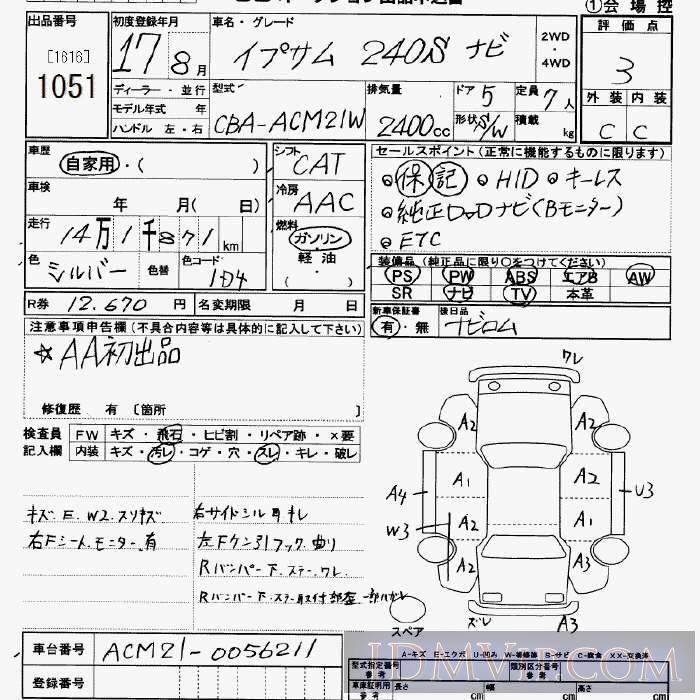 ①会場控
出品番号
[1616]
1051
初度登録年月
17年8月
車名・グレード
イプサム 240S ナビ
2WD・4WD
評価点
3
外装 内装
C C
ディーラー・並行
モデル年式 年
ハンドル 左・右
型式
CBA-ACM21W
排気量
2400cc
ドア 5
形状 S/W
定員 7人
積載 kg
車歴
自家用・( )
車検
年 月( 日)
走行
14万1千871km
色
シルバー
色替
色コード
1D4
シフト
CAT
冷房
AAC
燃料
ガソリン
軽・油
( )
セールスポイント(正常に機能するものに限ります)
保 記 HID キーレス
純正DVDナビ(Bモニター)
ETC
装備品(純正品に限り○をつけてください)
PS PW ABS エアB AW
SR ナビ TV 本革
新車保証書
有・無
後日品
ナビロム
R券 12.670円
名変期限 月 日
注意事項申告欄(不具合内容等は具体的に記入して下さい)
☆AA初出品
修復歴 有 [箇所 ]
検査員
記入欄
FW キズ・飛石・ヒビ割・リペア跡・×要
内装 キズ・汚レ・コゲ・穴・スレ・キレ・破レ
キズE.W2.スリキズ
右Fシート.モニター.有
右サイドシル耳キレ
左Fケン引フック.曲リ
Rバンパー下.ステー.ワレ.
Rバンパー下.ステー取付部
ワレ
A2 A2
A1 A2
A4 U3
W3 A2 A1
A3
ズレ A3
スペア
車台番号
ACM21-0056211
登録番号
A-キズ E-エクボ U-凹み W-補修跡 S-サビ C-腐食 XX-交換済
型式指定番号
参考
類別区分番号
参考
車庫証明用
参考
長さ cm
幅 cm
高さ cm
JDMVIP.COM